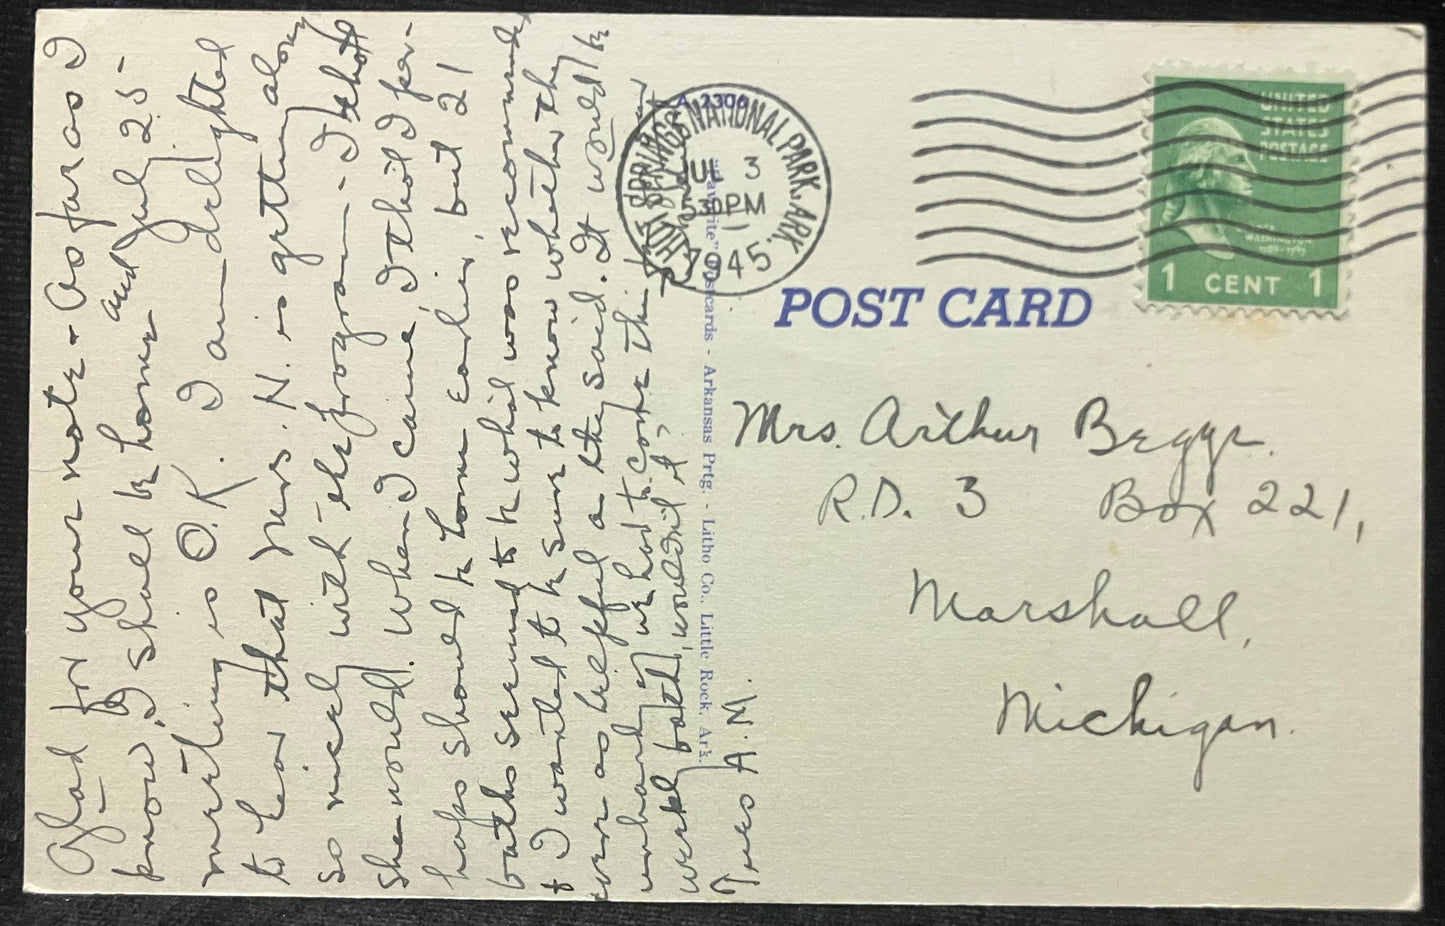 Glad for your note - As far as I
know, I shall be home and July 25 -
meeting is O.K. I am delighted
to hear that Mrs. N. is getting along
so nicely with the program - I thot
she would. When I came, I tho't I per-
haps should be home earlier, but 21
baths seemed to be what was recommended
& I wanted to be sure to know whether they
were as helpful as they said. It would be
unhandy if we had to come this
week both, wouldn't it?
Tues A.M.
A 2306
"Favorite" Postcards - Arkansas Prtg. - Litho Co., Little Rock, Ark.
HOT SPRINGS NATIONAL PARK, ARK.
JUL 3
5 30 PM
1945
UNITED
STATES
POSTAGE
WASHINGTON
1789-1797
1 CENT 1
POST CARD
Mrs. Arthur Beggs.
R.D. 3 Box 221,
Marshall,
Michigan.